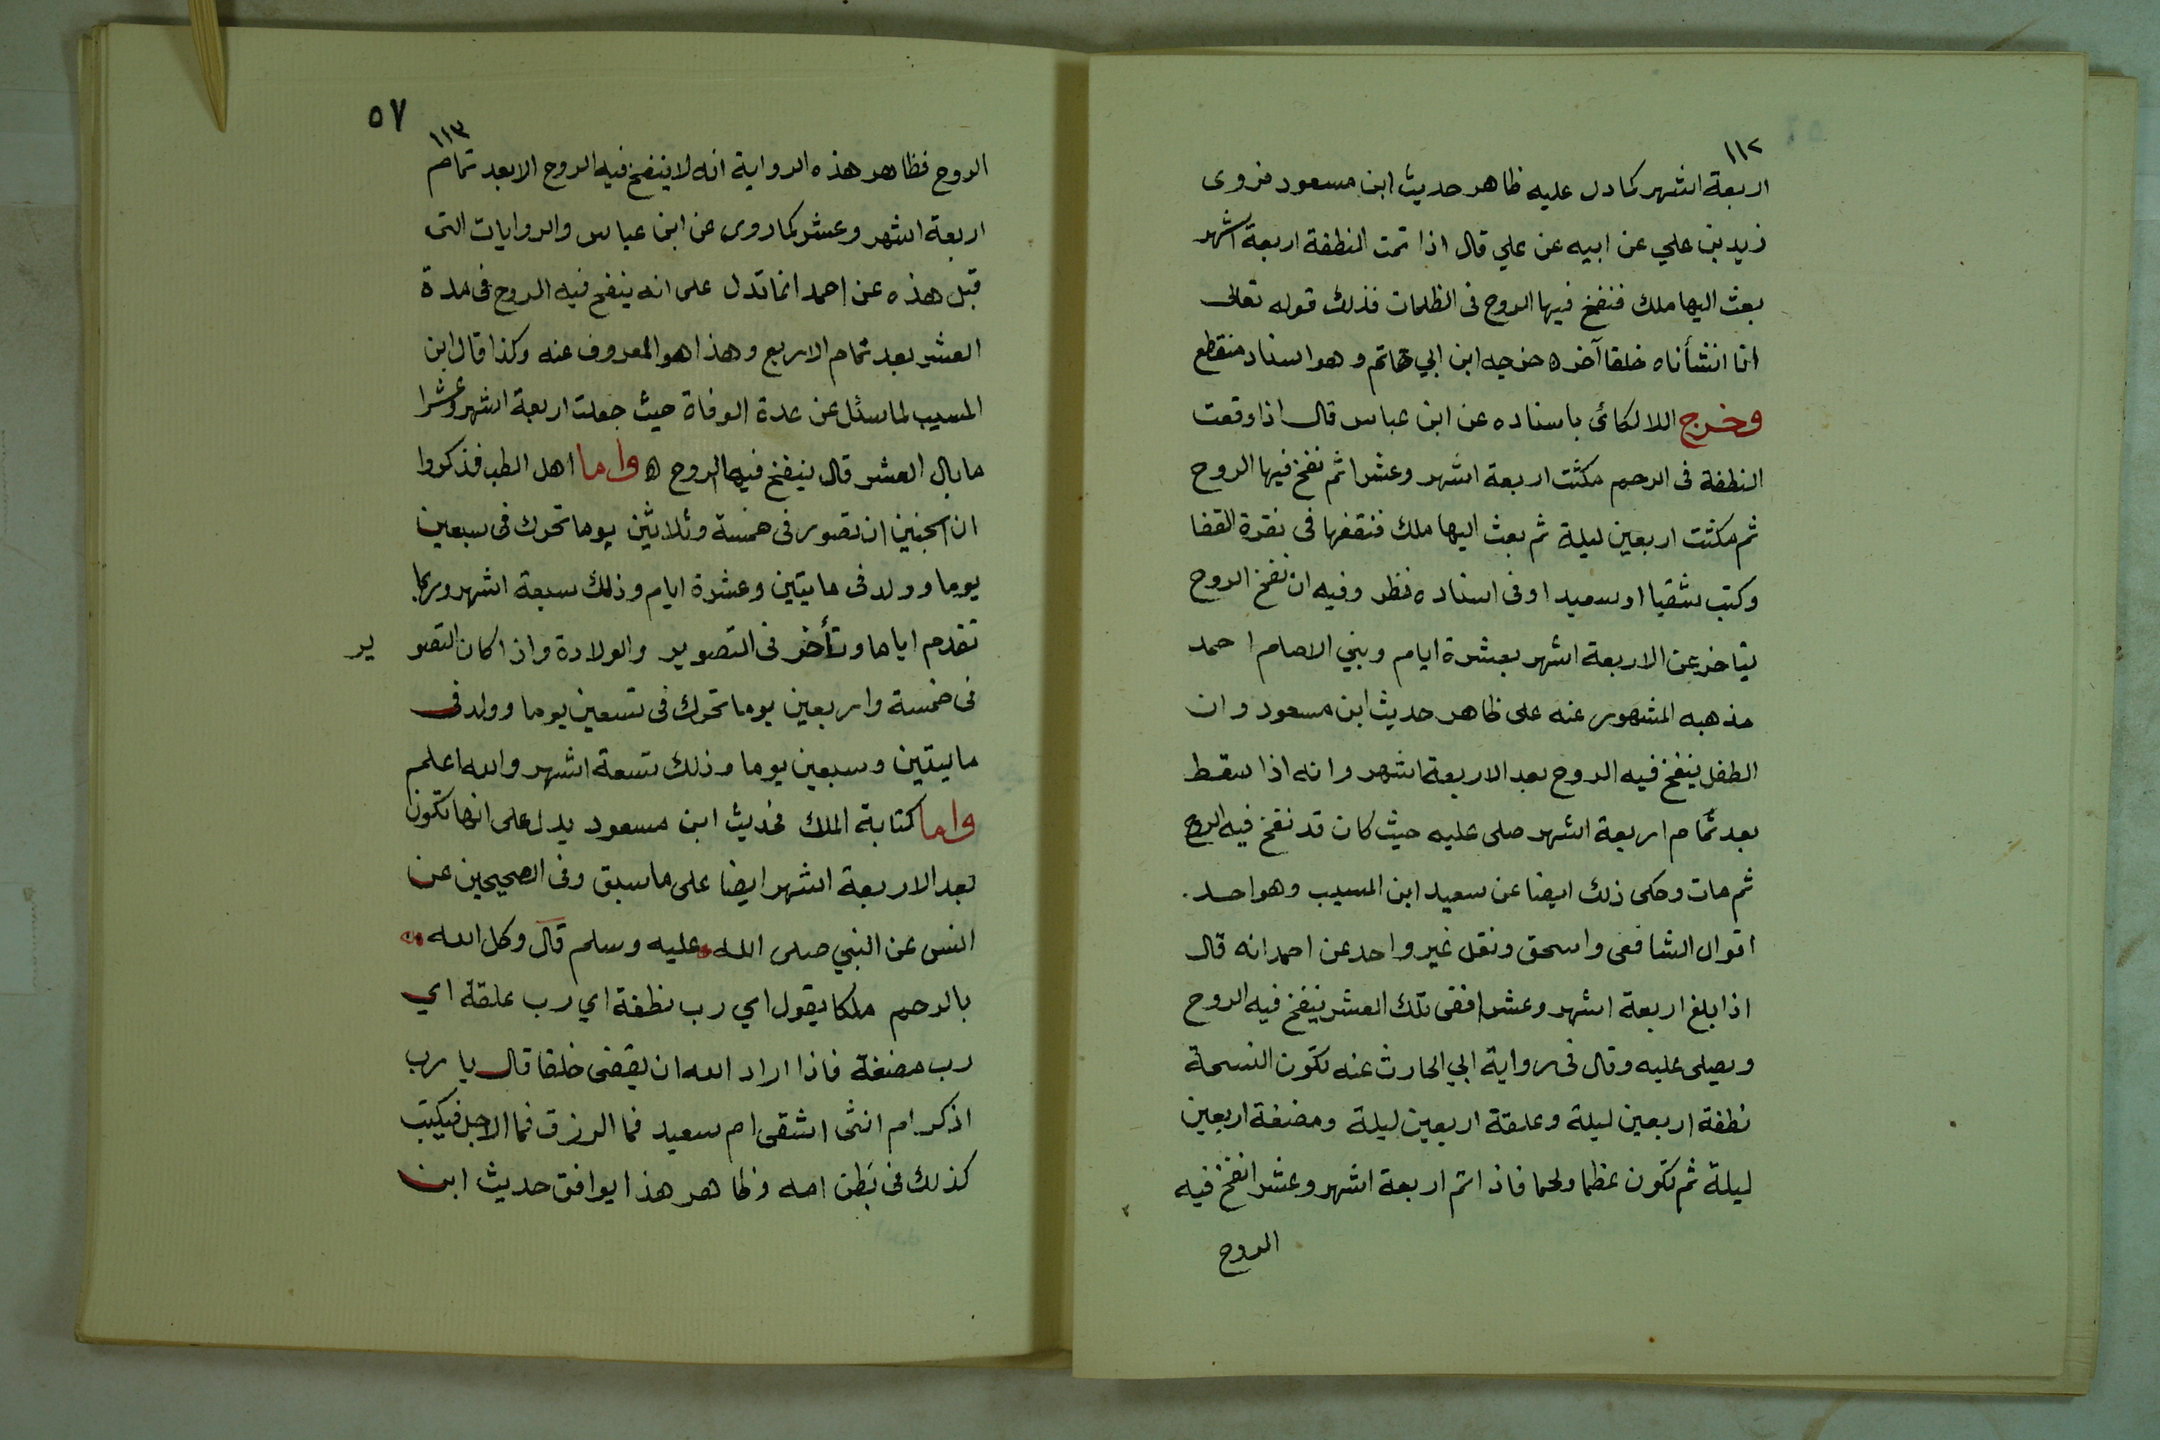 ١١٢
اربعة اشهر كما دل عليه ظاهر حديث ابن مسعود فروى
زيد بن علي عن ابيه عن علي قال اذا تمت النطفة اربعة اشهر
بعث اليها ملك فنفخ فيها الروح فى الظلمات فذلك قوله تعالى
انا انشأناه خلقا آخر ه خرجه ابن ابي حاتم وهو اسناد منقطع
وخرج اللالكائى باسناده عن ابن عباس قال اذا وقعت
النطفة فى الرحم مكثت اربعة اشهر وعشرا ثم نفخ فيها الروح
ثم مكثت اربعين ليلة ثم بعث اليها ملك فنقفها فى نقرة القفا
وكتب شقيا او سعيدا وفى اسناده نظر وفيه ان نفخ الروح
يتاخر عن الاربعة اشهر بعشرة ايام وبني الامام احمد
مذهبه المشهور عنه على ظاهر حديث ابن مسعود وان
الطفل ينفخ فيه الروح بعد الاربعة اشهر وانه اذا سقط
بعد تمام اربعة اشهر صلى عليه حيث كان قد نفخ فيه الروح
ثم مات وحكى ذلك ايضا عن سعيد ابن المسيب وهو احد
اقوال الشافعى واسحق ونقل غير واحد عن احمد انه قال
اذا بلغ اربعة اشهر وعشرا ففى تلك العشر ينفخ فيه الروح
ويصلى عليه وقال فى رواية ابي الحارث عنه تكون النسمة
نطفة اربعين ليلة وعلقة اربعين ليلة ومضغة اربعين
ليلة ثم تكون عظما ولحما فاذا تم اربعة اشهر وعشرا نفخ فيه
الروح
٥٧
١١٣
الروح فظاهر هذه الرواية انه لا ينفخ فيه الروح الا بعد تمام
اربعة اشهر وعشر كما روى عن ابن عباس والروايات التى
قبل هذه عن احمد انما تدل على انه ينفخ فيه الروح فى مدة
العشر بعد تمام الاربع وهذا هو المعروف عنه وكذا قال ابن
المسيب لما سئل عن عدة الوفاة حيث جعلت اربعة اشهر وعشرا
ما بال العشر قال ينفخ فيها الروح ه واما اهل الطب فذكروا
ان الجنين ان تصور فى خمسة وثلاثين يوما تحرك فى سبعين
يوما وولد فى مايتين وعشرة ايام وذلك سبعة اشهر وربما
تقدم اياما وتأخر فى التصوير والولادة واذا كان التصو ير
فى خمسة واربعين يوما تحرك فى تسعين يوما وولد فى
مايتين وسبعين يوما وذلك تسعة اشهر والله اعلم
واما كتابة الملك فحديث ابن مسعود يدل على انها تكون
بعد الاربعة اشهر ايضا على ما سبق وفى الصحيحين عن
انس عن النبي صلى الله عليه وسلم قال وكل الله
بالرحم ملكا يقول اي رب نطفة اي رب علقة اي
رب مضغة فاذا اراد الله ان يقضى خلقا قال يا رب
اذكر ام انثى اشقى ام سعيد فما الرزق فما الاجل فيكتب
كذلك فى بطن امه وظاهر هذا يوافق حديث ابن